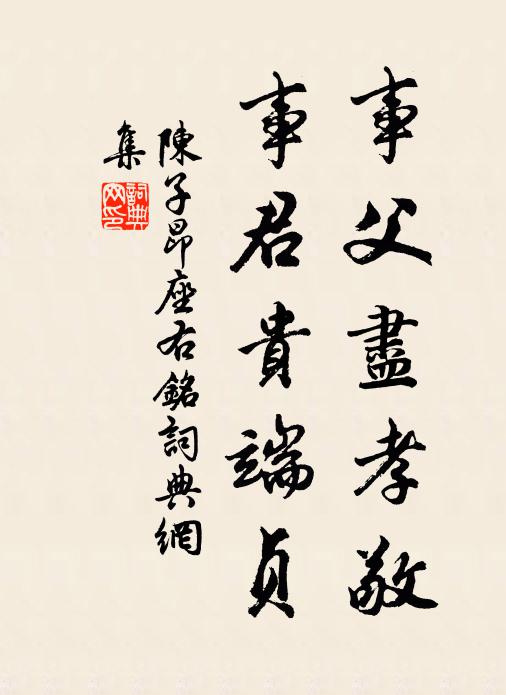 事父盡孝敬
事君貴端貞
陳子昂座右銘詞典網
集
詞典网印